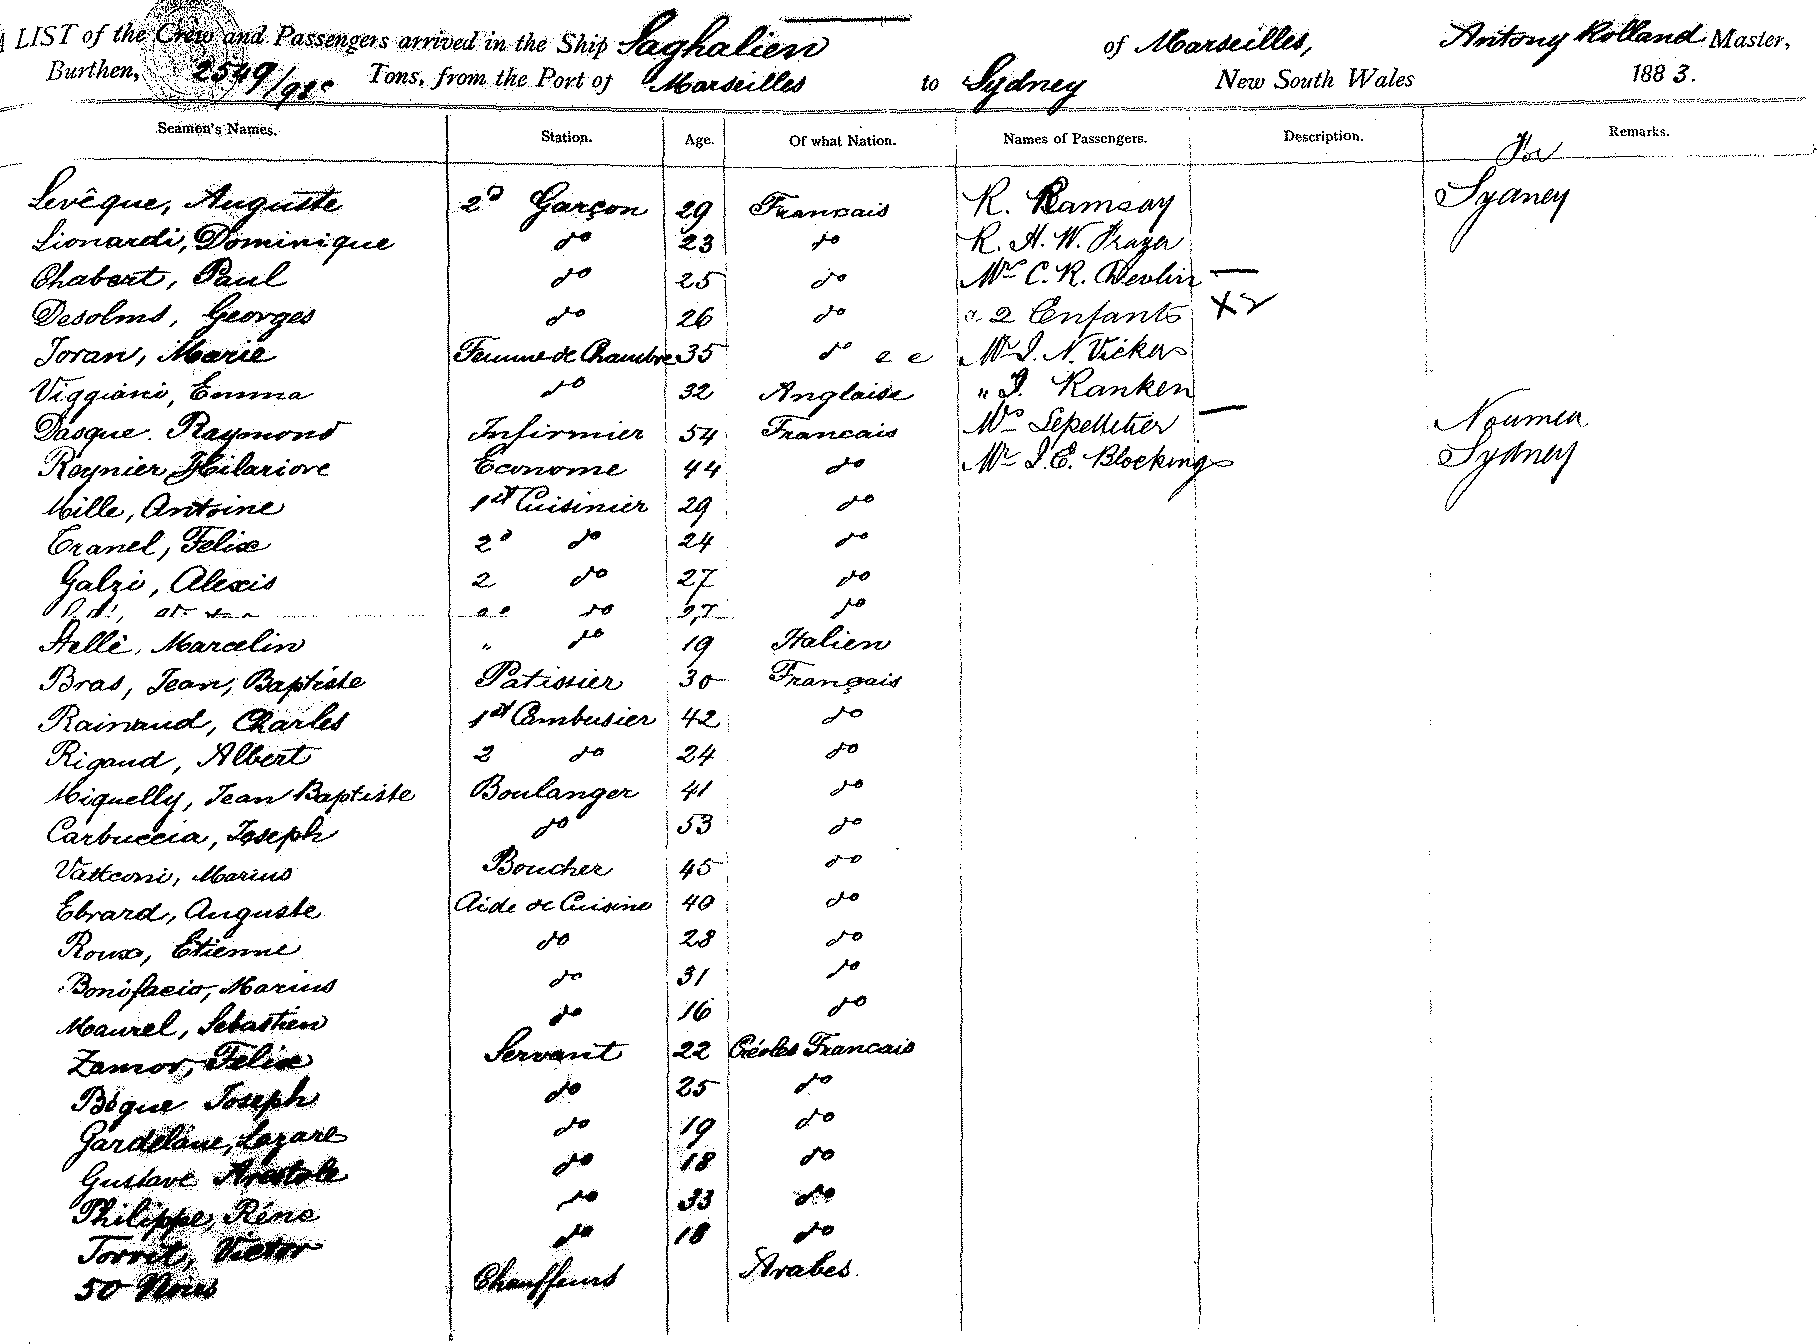 A LIST of the Crew and Passengers arrived in the Ship Saghalien of Marseilles, Antony Rolland Master,
Burthen, 2549/98c Tons, from the Port of Marseilles to Sydney New South Wales 1883.
Seamen's Names. Station. Age. Of what Nation. Names of Passengers. Description. Remarks.
For
Levêque, Auguste 2d Garçon 29 Français R. Ramsay Sydney
Lionardi, Dominique do 23 do R. H. W. Frazer
Chabert, Paul do 25 do Mrs C. R. Devlin —
Desolms, Georges do 26 do 2 Enfants X2
Joran, Marie Femme de Chambre 35 do e e Mr J. N. Vickers
Viggiani, Emma do 32 Anglaise " J. Ranken
Dasque. Raymond Infirmier 54 Francais Mrs Lepelletier — Noumea
Reynier Hilarione Econome 44 do Mr J. E. Blocking Sydney
Mille, Antoine 1st Cuisinier 29 do
Tranel, Felix 2d do 24 do
Galzi, Alexis 2 do 27 do
do do
Stellé, Marcelin " do 19 Italien
Bras, Jean, Baptiste Patissier 30 Français
Rainaud, Charles 1st Cambusier 42 do
Rigaud, Albert 2 do 24 do
Miquelly, Jean Baptiste Boulanger 41 do
Carbuccia, Joseph do 53 do
Vattconi, Marius Boucher 45 do
Ebrard, Auguste Aide de Cuisine 40 do
Roux, Etienne do 28 do
Bonifacio, Marius do 31 do
Maurel, Sebastien do 16 do
Zamor, Felix Servant 22 Créoles Francais
Bégue Joseph do 25 do
Gardelane, Lazare do 19 do
Gustave do 18 do
Philippe, Réne do 33 do
Torrit, Victor do 18 do
50 Noirs Chauffeurs Arabes.